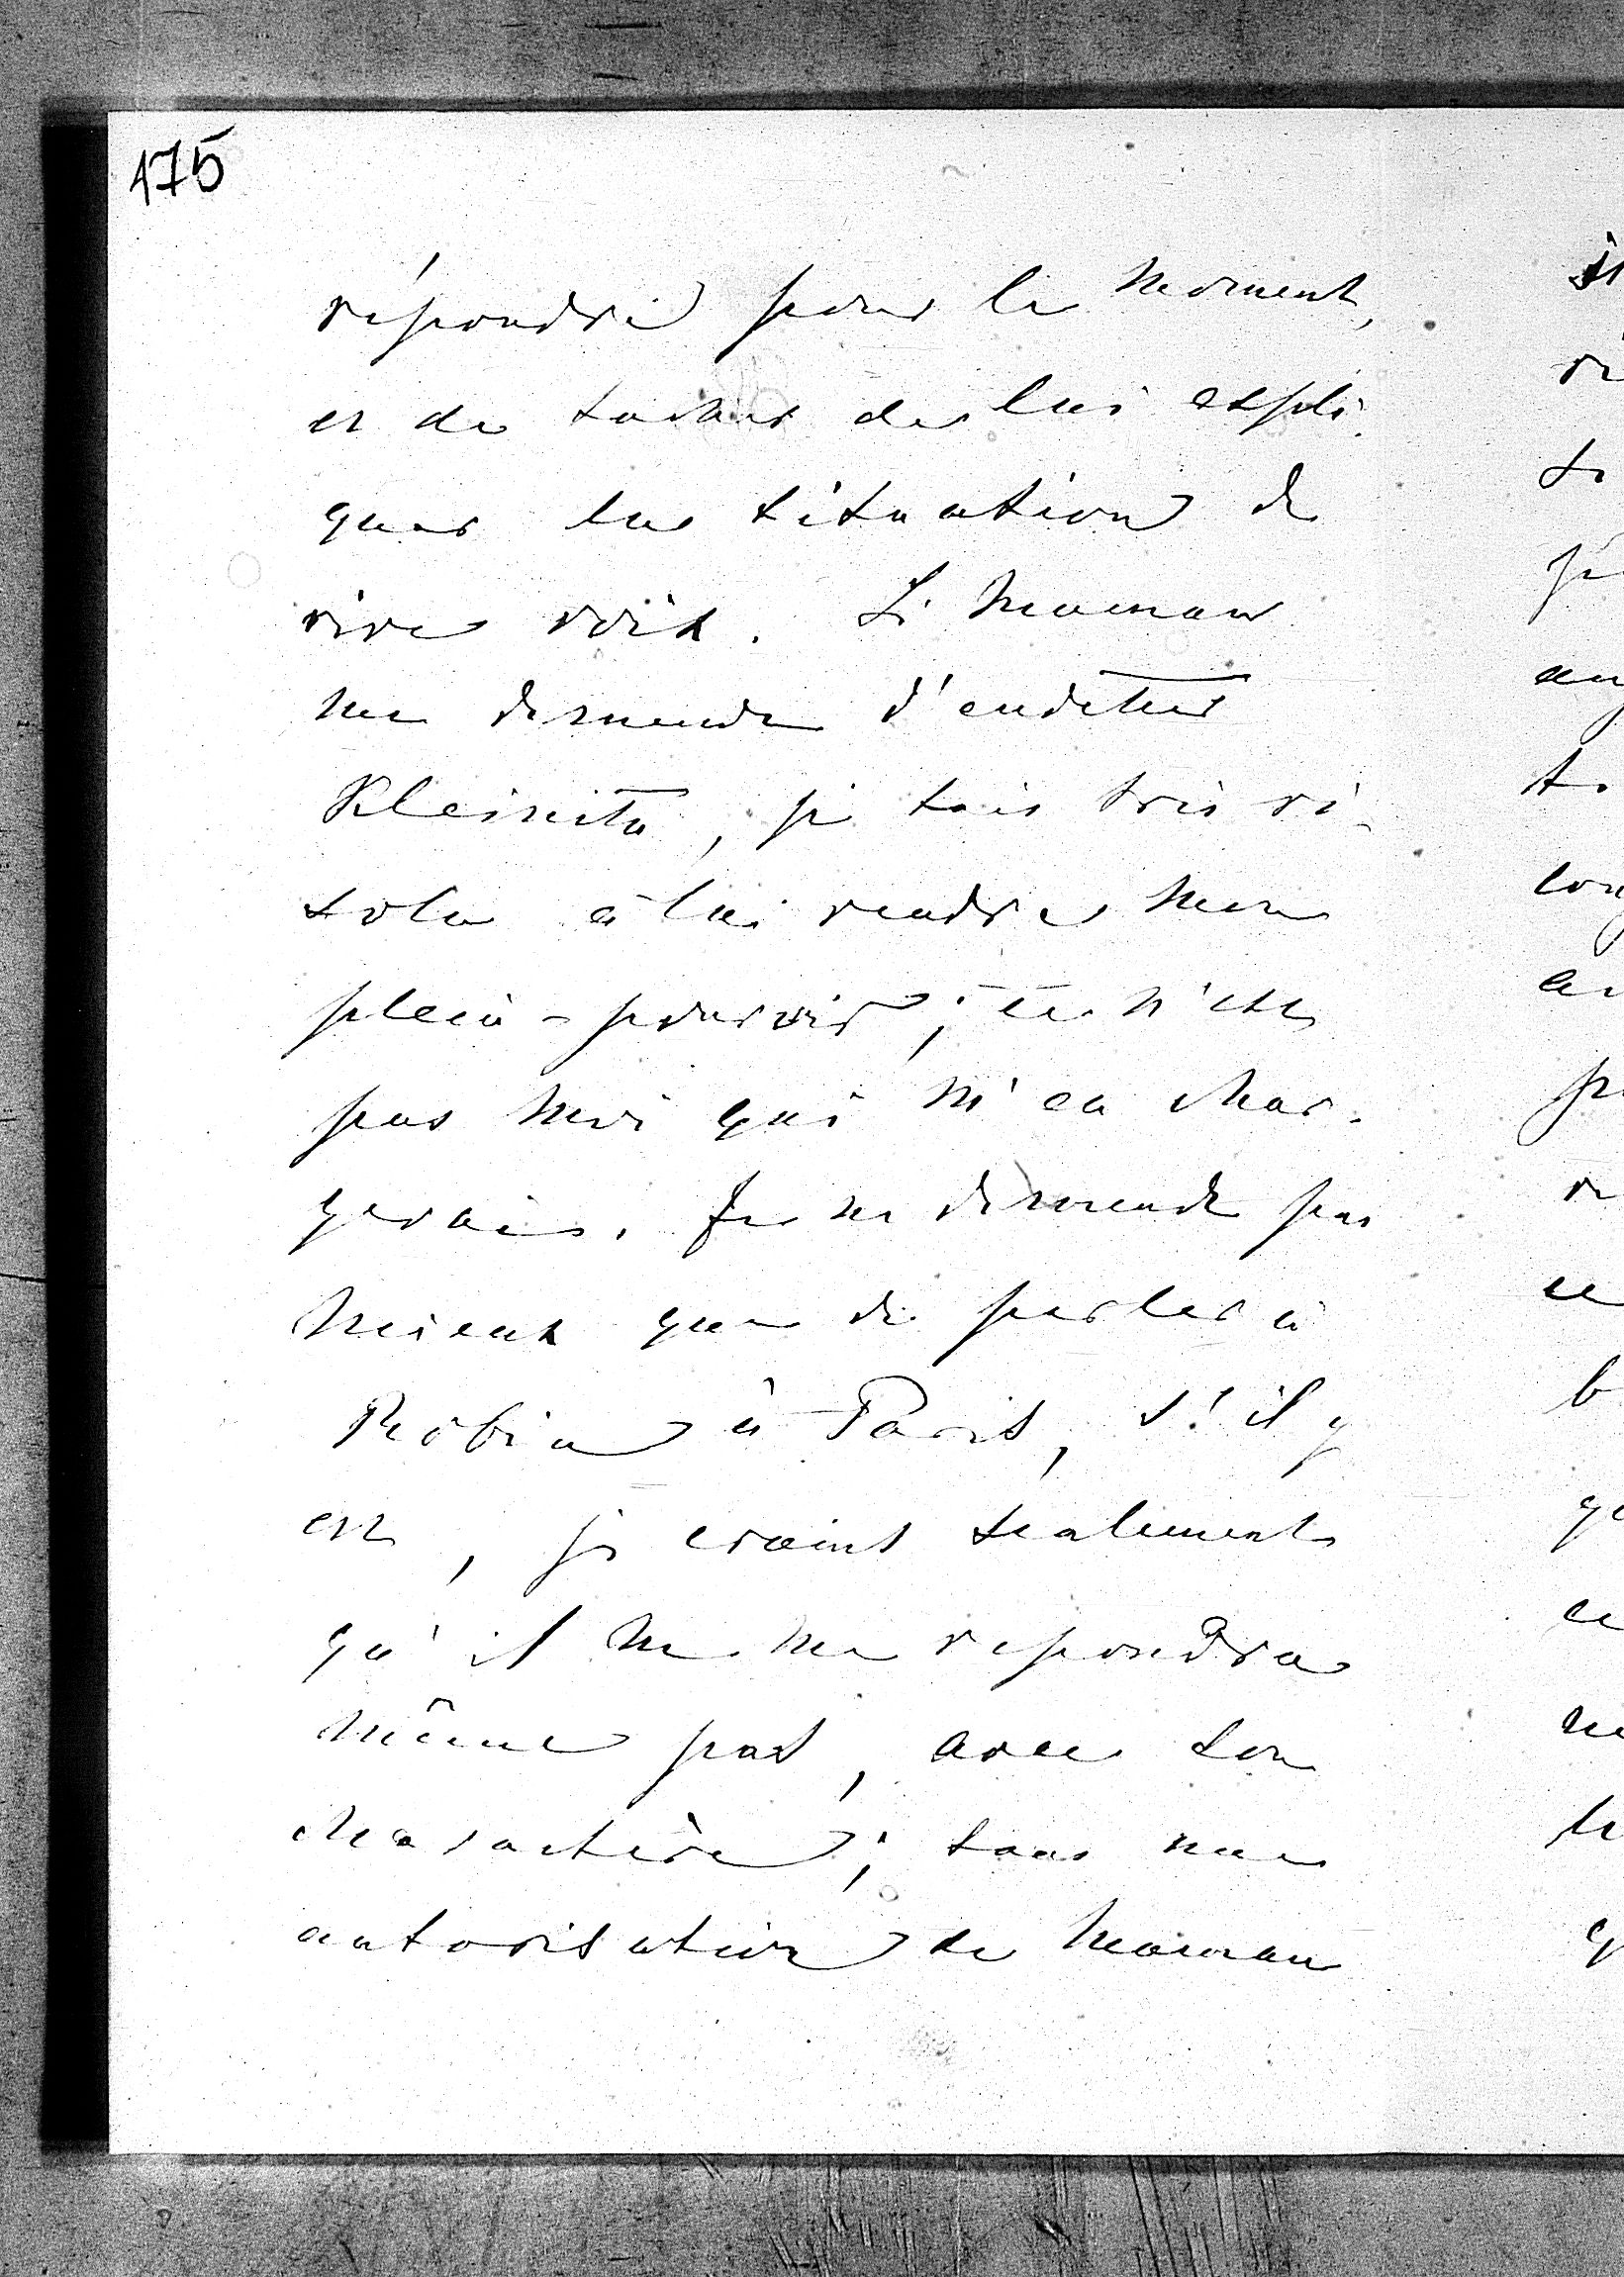 175
répondre pour le moment,
et de tacher de lui expli-
quer la situation de
vive voix. Si Maman
me demande d'endetter
Kleinita, je suis très ré-
solu à lui rendre mon
plein-pouvoir; ce n'est
pas moi qui m'en char-
gerais. Je ne demande pas
mieux que de parler à
Robin à Paris, s'il y
est, je crains seulement
qu'il ne me repondra
même pas, avec son
charactère; sans une
autorisation de Maman